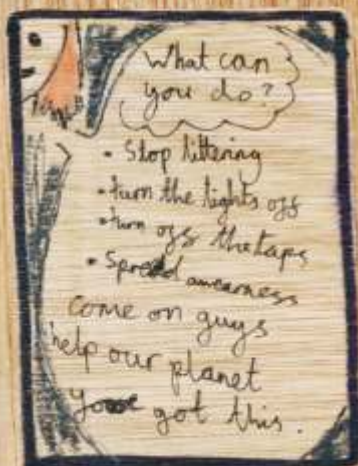 What can
you do?
• Stop littering
• turn the lights off
• turn off the taps
• Spread awareness
come on guys
help our planet
You got this.